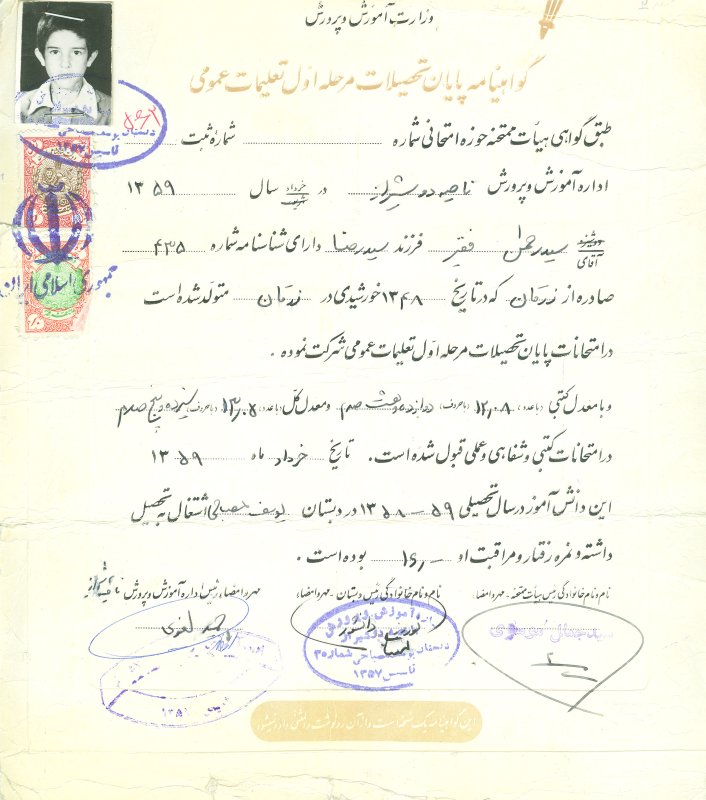 وزارت آموزش و پرورش
گواهینامه پایان تحصیلات مرحله اول تعلیمات عمومی
طبق گواهی هیأت ممتحنه حوزه امتحانی شماره شماره ثبت
اداره آموزش و پرورش ناحیه دو شیراز در خرداد سال ۱۳۵۹
آقای سید رحمان فقیر فرزند سید رضا دارای شناسنامه شماره ۴۳۵
صادره از که در تاریخ ۱۳۴۸ خورشیدی در متولد شده است
در امتحانات پایان تحصیلات مرحله اول تعلیمات عمومی شرکت نموده .
و با معدل کتبی (با عدد) ۱۲,۰۸ (با حروف) دوازده هشت صدم و معدل کل (با عدد) ۱۳,۰۵ (با حروف) سیزده پنج صدم
در امتحانات کتبی و شفاهی و عملی قبول شده است . تاریخ خرداد ماه ۱۳۵۹
این دانش آموز در سال تحصیلی ۵۹ – ۱۳۵۸ در دبستان یوسف مصباحی اشتغال به تحصیل
داشته و نمره رفتار و مراقبت او بوده است .
نام و نام خانوادگی رئیس هیأت ممتحنه - مهر و امضاء نام و نام خانوادگی رئیس دبستان - مهر و امضاء مهر و امضاء رئیس اداره آموزش و پرورش
سید جمال موسوی
دبستان یوسف مصباحی
تاسیس ۱۳۵۷
جمهوری اسلامی ایران